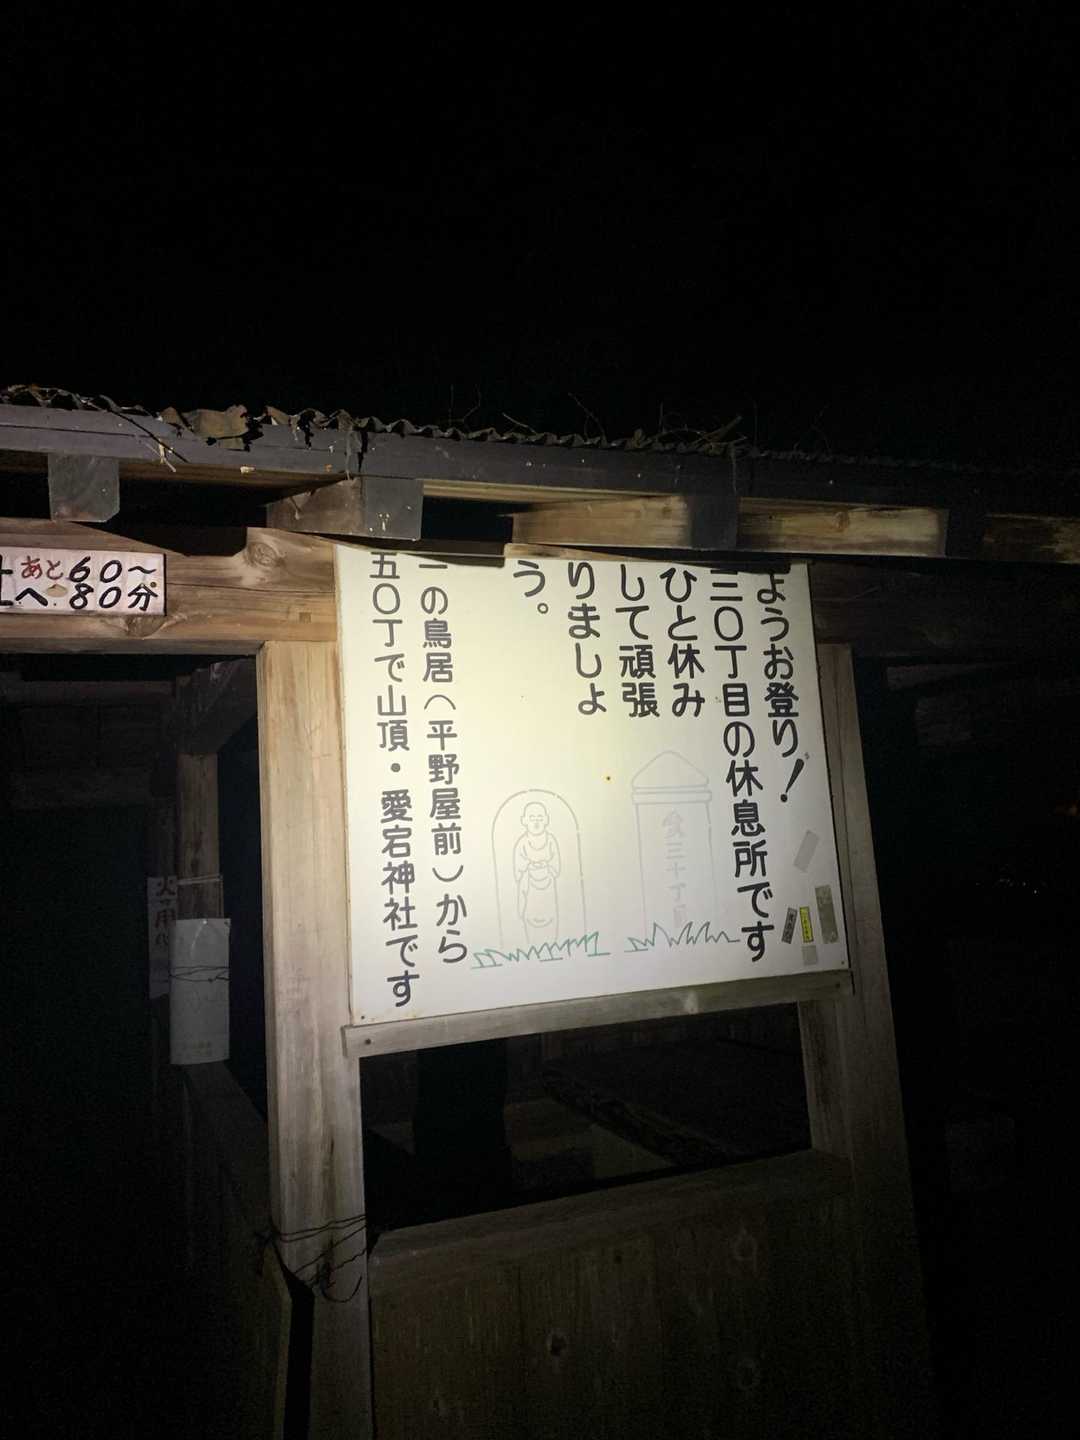 ようお登り!
三〇丁目の休息所です
ひと休み
して頑張
りましょ
う。
一の鳥居(平野屋前)から
五〇丁で山頂・愛宕神社です
三十丁目
あと60〜
へ 80分
火の用心